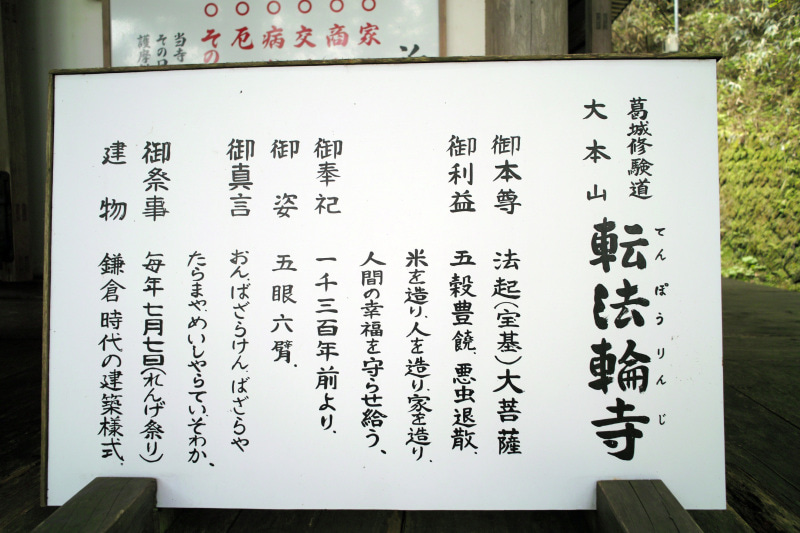 葛城修験道
大本山
転法輪寺
てんぽうりんじ
御本尊 法起(宝基)大菩薩
御利益 五穀豊饒、悪虫退散、
米を造り、人を造り、家を造り、
人間の幸福を守らせ給う、
御奉祀 一千三百年前より、
御姿 五眼六臂、
御真言 おん、ばざらけん、ばざらや
たらまや、めいしゃらてい、そわか、
御祭事 毎年七月七日(れんげ祭り)
建物 鎌倉時代の建築様式、
○家
○商
○交
○病
○厄
○その
当寺
その
護摩